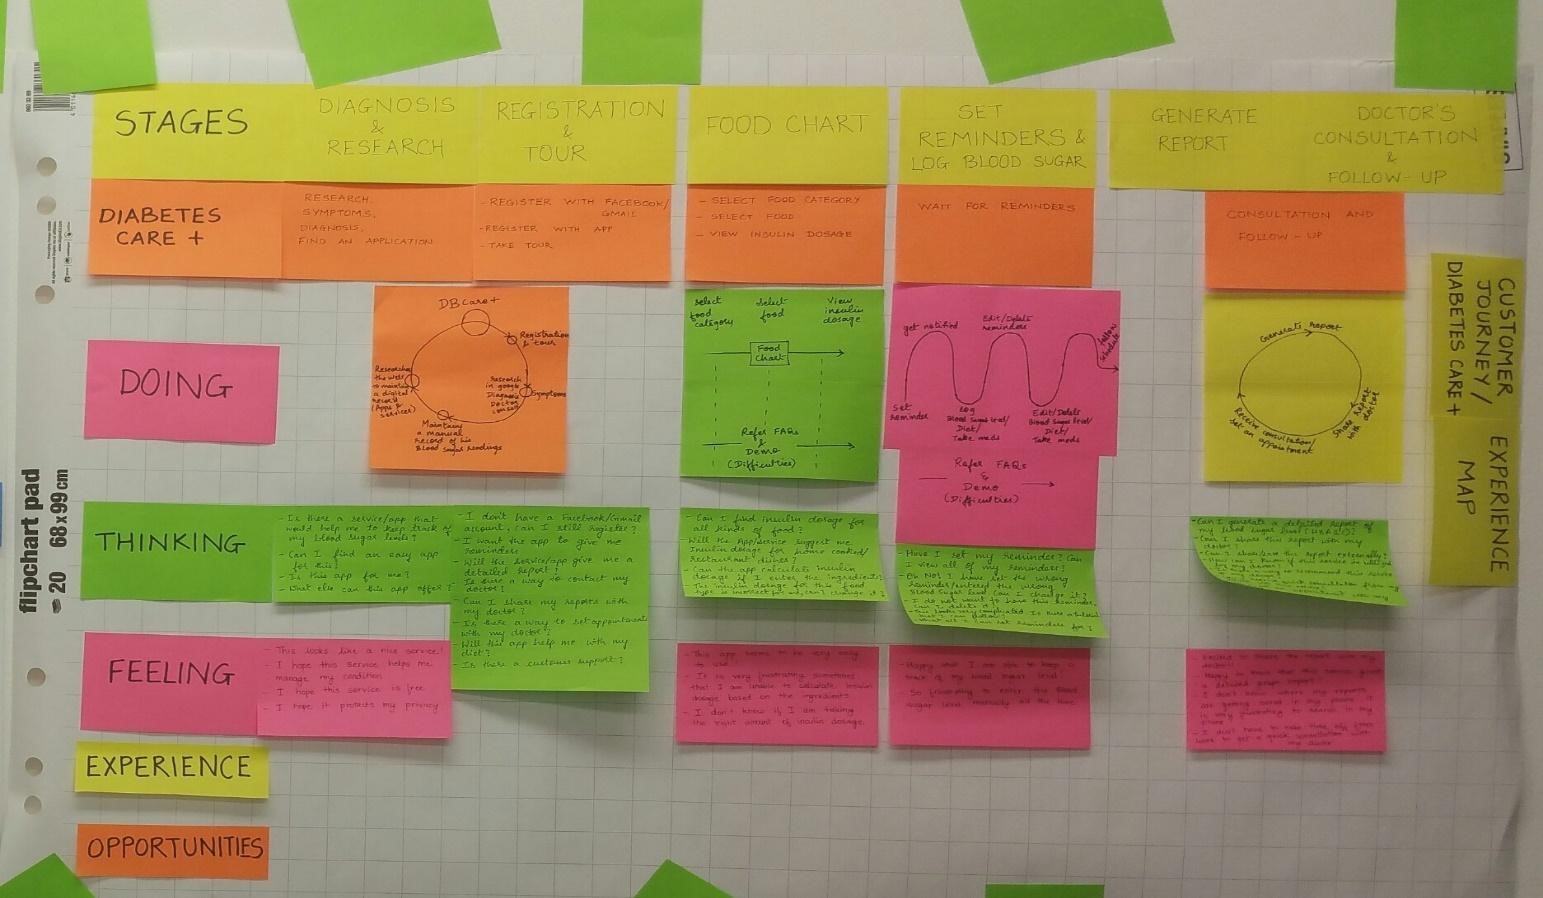 STAGES
DIAGNOSIS
&
RESEARCH
REGISTRATION
&
TOUR
FOOD CHART
SET
REMINDERS &
LOG BLOOD SUGAR
GENERATE
REPORT
DOCTOR'S
CONSULTATION
&
FOLLOW-UP
DIABETES
CARE +
RESEARCH.
SYMPTOMS,
DIAGNOSIS,
FIND AN APPLICATION
- REGISTER WITH FACEBOOK/
GMAIL
- REGISTER WITH APP
- TAKE TOUR
- SELECT FOOD CATEGORY
- SELECT FOOD
- VIEW INSULIN DOSAGE
WAIT FOR REMINDERS
CONSULTATION AND
FOLLOW-UP
CUSTOMER
JOURNEY/
DIABETES CARE+
EXPERIENCE
MAP
DOING
DBCare+
Registration
& tour
Symptoms
Research
in google
Diagnosis
Doctor
Maintain
a manual
record of his
Blood sugar readings
the web
to maintain
a digital
record
(Apps &
services)
Select
food
category
Select
food
View
insulin
dosage
Food
Chart
Refer FAQs
&
Demo
(Difficulties)
get notified
Edit/Delete
reminders
follow
schedule
Set
reminder
Log
Blood Sugar level/
Diet/
Take meds
Edit/Delete
Blood Sugar level/
Diet/
Take meds
Refer FAQs
&
Demo
(Difficulties)
Generate Report
Share report
with doctor
Receive consultation/
Set an appointment
THINKING
- Is there a service/app that
would help me to keep track of
my blood sugar levels?
- Can I find an easy app
for this?
- Is this app for me?
- What else can this app offer?
- I don't have a Facebook/Gmail
account, can I still register?
- I want the app to give me
reminders
- Will the service/app give me a
detailed report?
- Is there a way to contact my
doctor?
- Can I share my reports with
my doctor?
- Is there a way to set appointments
with my doctor?
- Will this app help me with my
diet?
- Is there a customer support?
- Can I find insulin dosage for
all kinds of food?
- Will the App/service suggest me
Insulin dosage for home cooked/
restaurant dishes?
- Can the app calculate insulin
dosage if I enter the ingredients?
- The insulin dosage for this food
type is incorrect for me, can I change it?
- Have I set my reminder? Can
I view all of my reminder?
- Oh No! I have set the wrong
reminder/entered the wrong
Blood Sugar level Can I change it?
- I do not want to have this reminder,
Can I delete it?
- Can I generate a detailed report of
my blood sugar level
- Can I share this report with my
doctor?
- Can I share this report externally?
FEELING
- This looks like a nice service!
- I hope this service helps me
manage my condition
- I hope this service is free
- I hope it protects my privacy
- This app seems to be very easy
to use
- It is very frustrating sometimes
that I am unable to calculate insulin
dosage based on the ingredients.
- I don't know if I am taking
the right amount of insulin dosage.
- Happy that I am able to keep a
track of my blood sugar level
- So frustrating to enter the blood
sugar level manually all the time
EXPERIENCE
OPPORTUNITIES
flipchart pad
20 68x99 cm